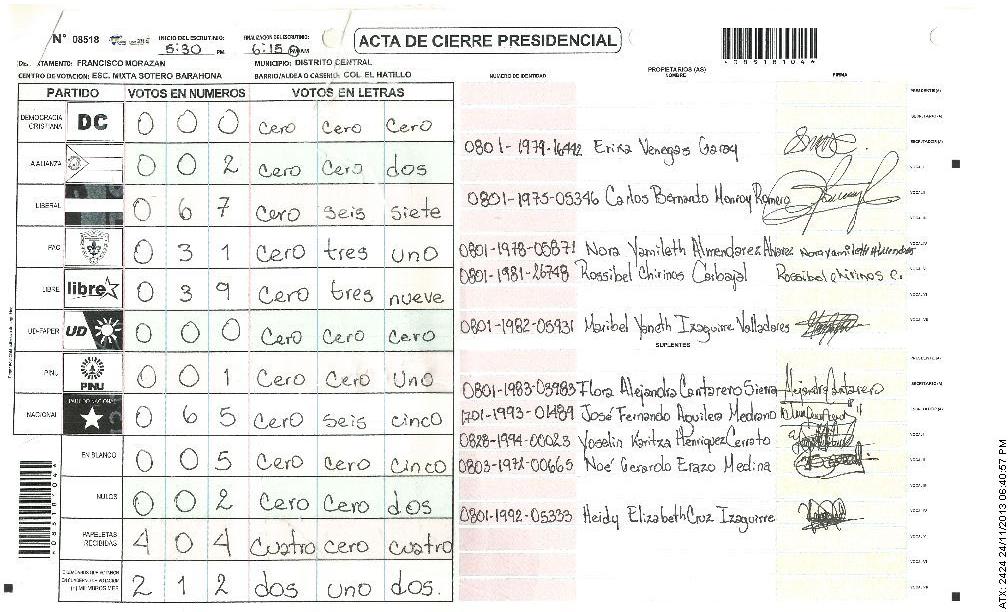 N° 08518
INICIO DEL ESCRUTINIO: 5:30 PM
FINALIZACION DEL ESCRUTINIO: 6:15 PM
ACTA DE CIERRE PRESIDENCIAL
*08518104*
FRANCISCO MORAZAN
MUNICIPIO: DISTRITO CENTRAL
CENTRO DE VOTACION: ESC. MIXTA SOTERO BARAHONA
BARRIO/ALDEA O CASERIO: COL. EL HATILLO
NUMERO DE IDENTIDAD
PROPIETARIOS (AS)
NOMBRE
FIRMA
PARTIDO VOTOS EN NUMEROS VOTOS EN LETRAS
DEMOCRACIA CRISTIANA DC 0 0 0 cero cero cero
ALIANZA 0 0 2 cero cero dos
LIBERAL 0 6 7 cero seis siete
PAC 0 3 1 cero tres uno
LIBRE libre 0 3 9 cero tres nueve
UD-FAPER UD 0 0 0 cero cero cero
PINU PINU 0 0 1 cero cero uno
NACIONAL 0 6 5 cero seis cinco
EN BLANCO 0 0 5 cero cero cinco
NULOS 0 0 2 cero cero dos
PAPELETAS RECIBIDAS 4 0 4 cuatro cero cuatro
2 1 2 dos uno dos.
PRESIDENTE(A)
SECRETARIO(A)
ESCRUTADOR(A)
0801-1979-16442 Erika Venegas Garay
0801-1975-05346 Carlos Bernardo Monroy Romero
0801-1978-05871 Nora Yamileth Almendarez Alvarez
0801-1981-26748 Rossibel Chirinos Carbajal Rossibel chirinos c.
0801-1982-05931 Maribel Yaneth Izaguirre Valladares
SUPLENTES
PRESIDENTE(A)
SECRETARIO(A)
0801-1983-03983 Flora Alejandra Cantarero Sierra Alejandra Cantarero
José Fernando Aguilera Medrano
0828-1994-00023 Yoselin Karitza Henriquez Cerrato
Noé Gerardo Erazo Medina
0801-1992-05333 Heidy Elizabeth Cruz Izaguirre
*08518104*
ATX: 2424 24/11/2013 06:40:57 PM